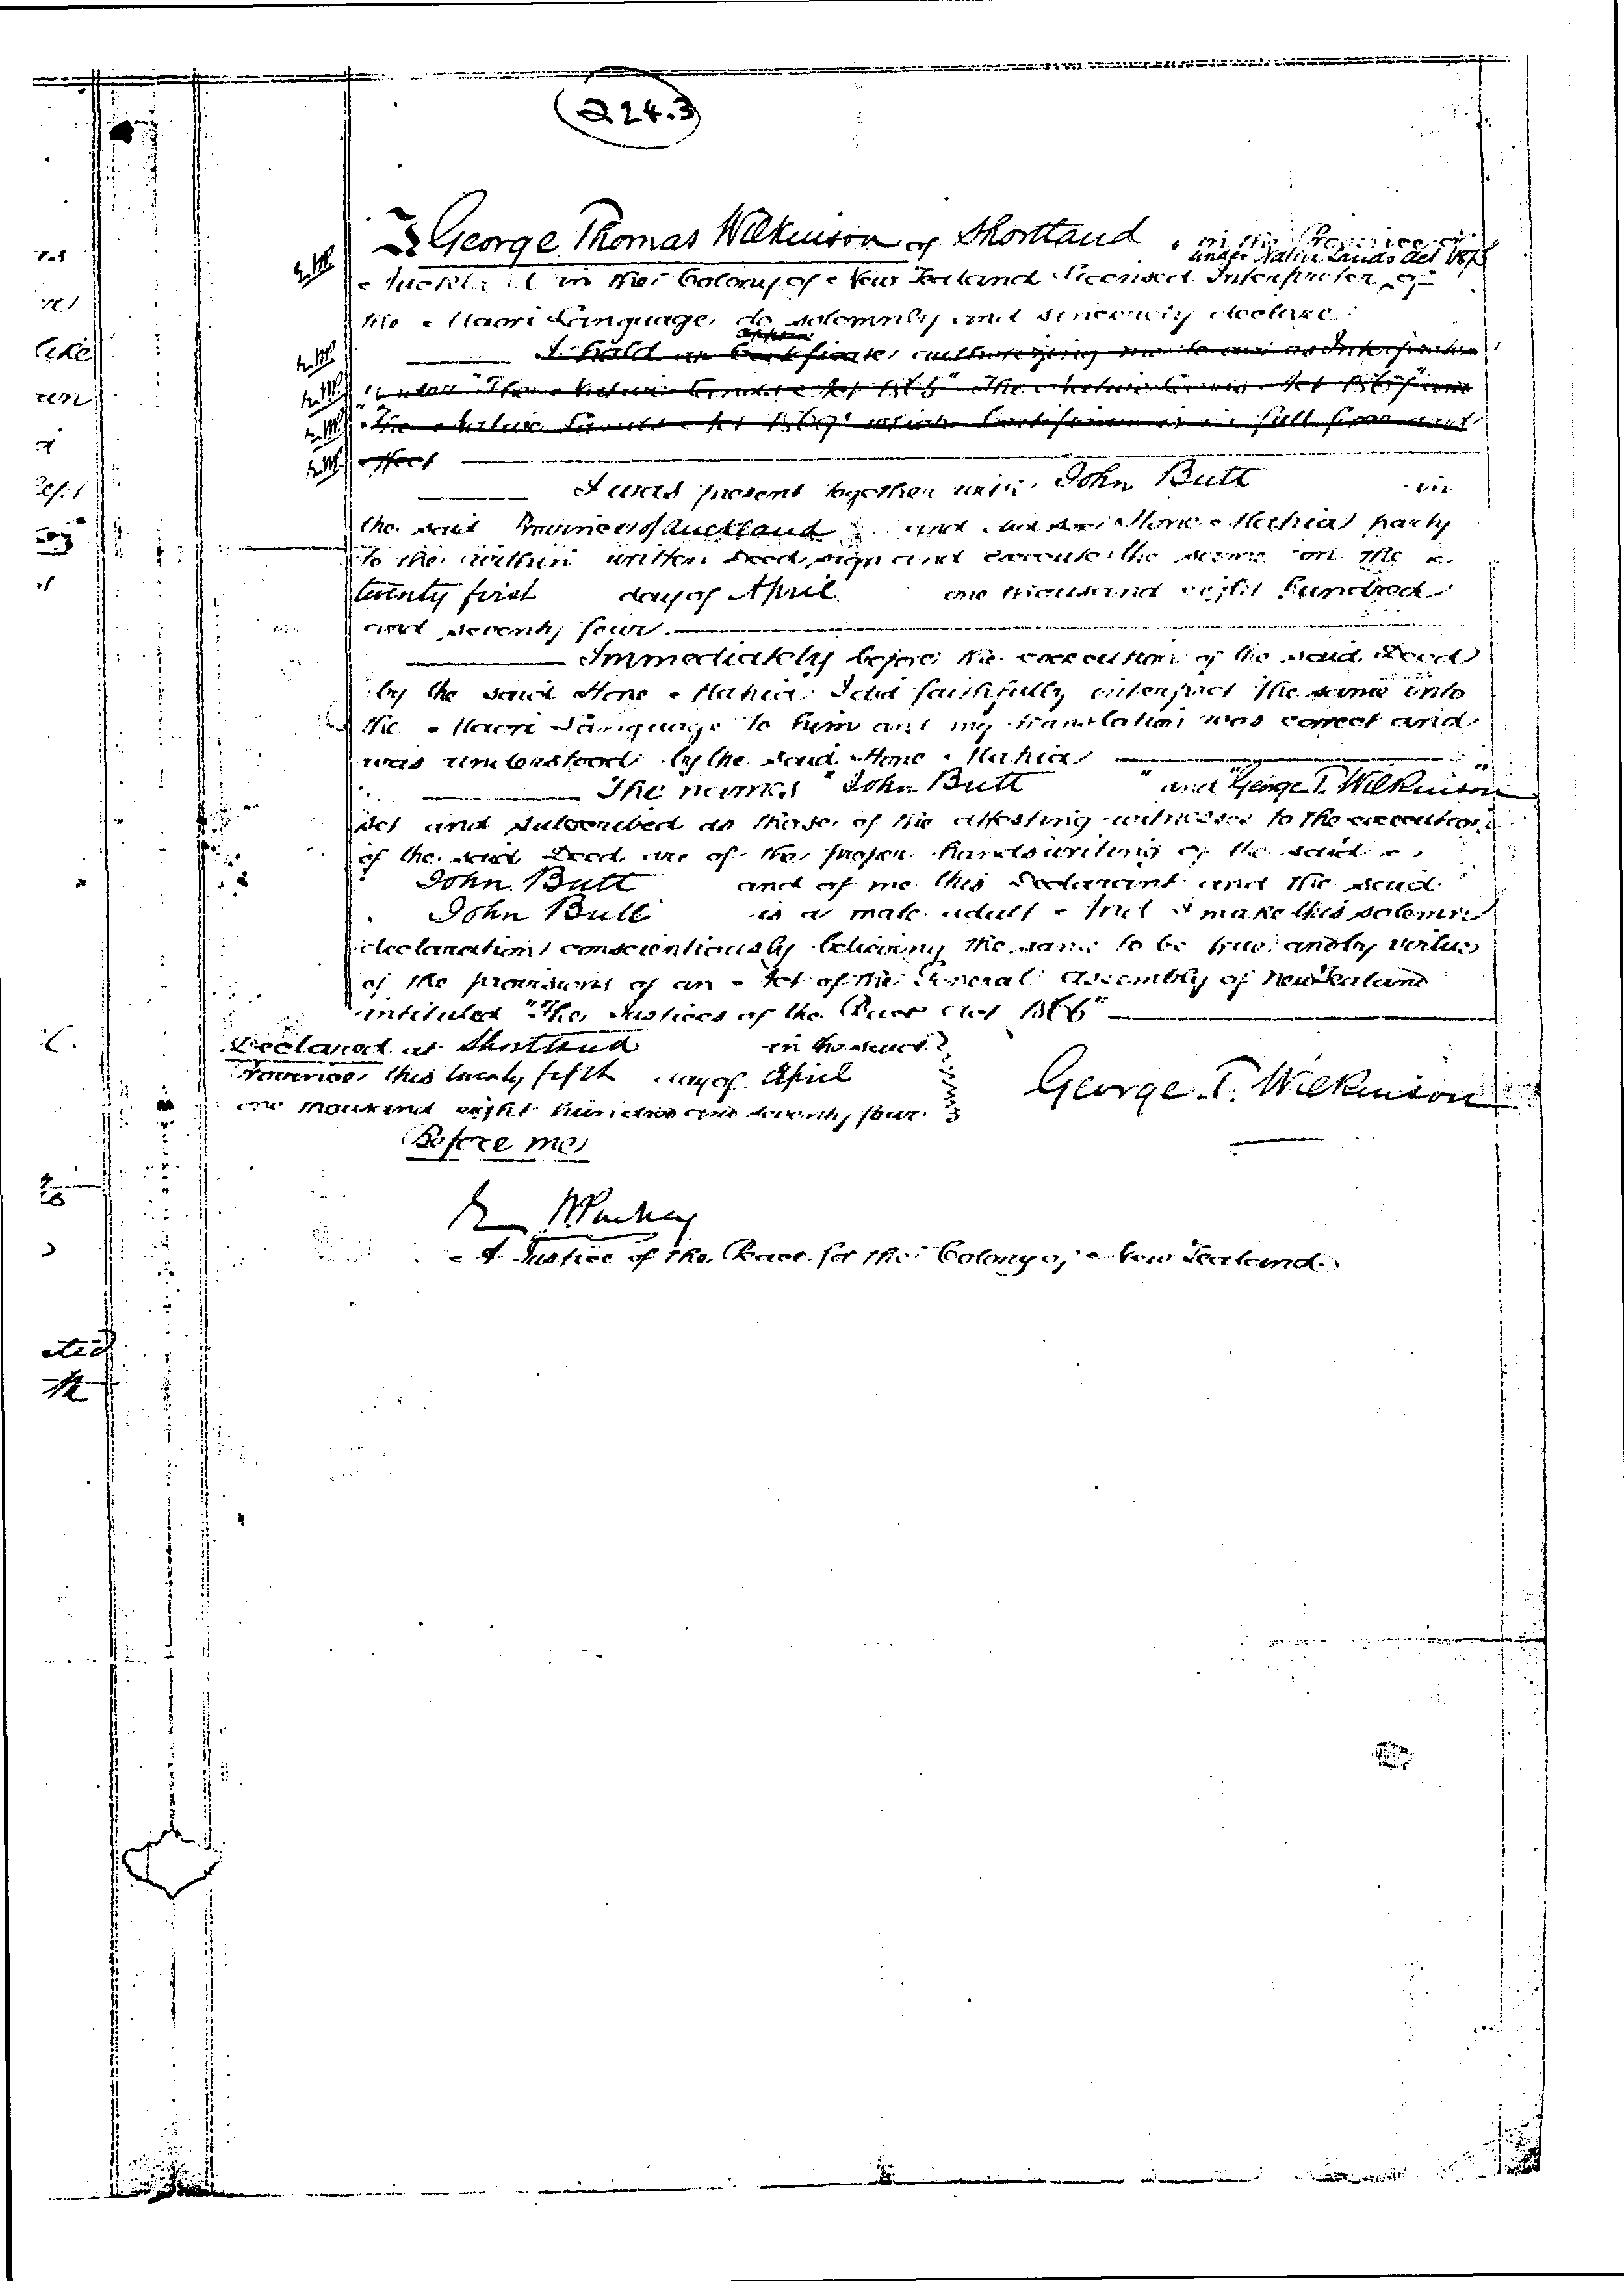 224.3
I George Thomas Wilkinson of Shortland in the Province of
under Native Lands Act 1873
Auckland in the Colony of New Zealand Licensed Interpreter of
the Maori Language do solemnly and sincerely declare
I hold a Certificate authorizing me to act as Interpreter
under "The Native Lands Act 1865" The Native Lands Act 1867" and
"The Native Lands Act 1869" which Certificate is in full force and
effect
I was present together with John Butt in
the said Province of Auckland and did see Hone Mahia party
to the within written Deed sign and execute the same on the
twenty first day of April one thousand eight hundred
and seventy four
Immediately before the execution of the said Deed
by the said Hone Mahia I did faithfully interpret the same into
the Maori Language to him and my translation was correct and
was understood by the said Hone Mahia
The names "John Butt" and "George T. Wilkinson"
set and subscribed as those of the attesting witnesses to the execution
of the said Deed are of the proper handswriting of the said
John Butt and of me this Declarant and the said
John Butt is a male adult And I make this solemn
declaration conscientiously believing the same to be true and by virtue
of the provisions of an Act of the General Assembly of New Zealand
intituled "The Justices of the Peace Act 1866"
Declared at Shortland in the said
Province this twenty fifth day of April
one thousand eight hundred and seventy four
George T. Wilkinson
Before me
A Justice of the Peace for the Colony of New Zealand